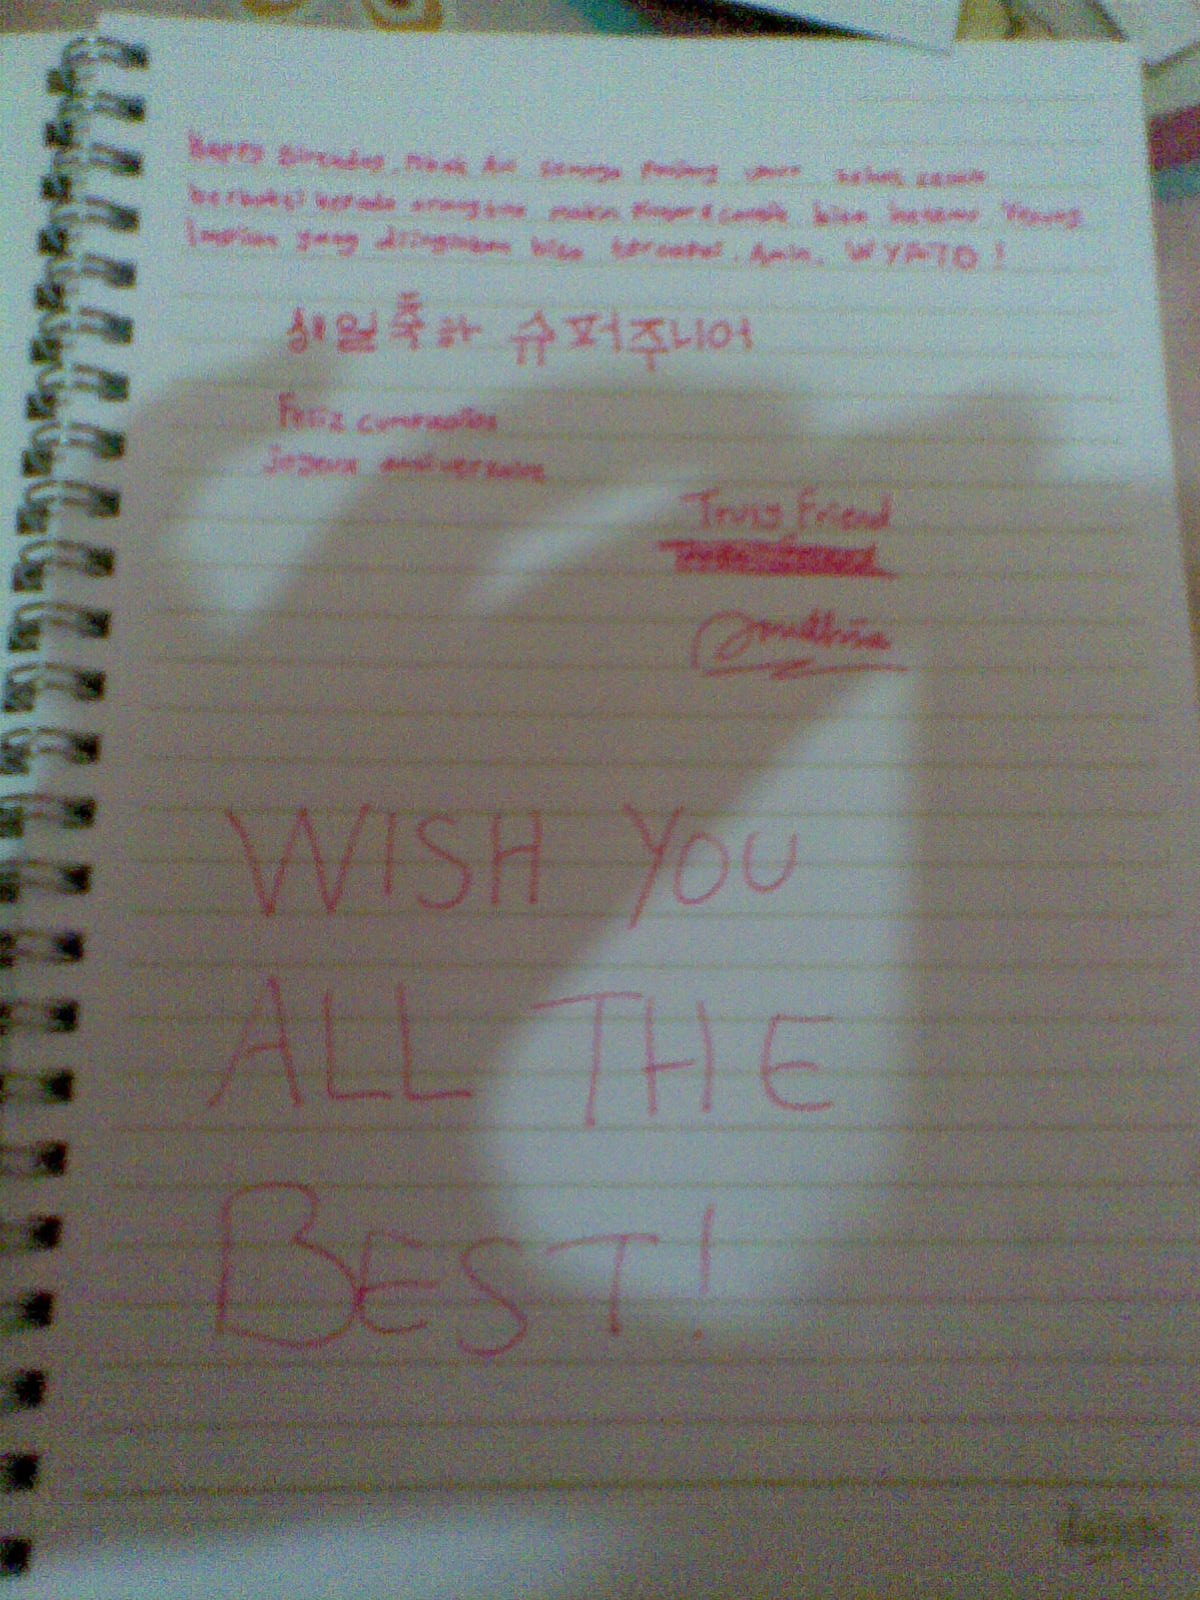 Happy Birthday, Mbak Ari semoga panjang umur sehat selalu
berbakti kepada orangtua makin pinter & cantik bisa ketemu Yesung
Impian yang diinginkan bisa tercapai. Amin. WYATB!
생일축하 슈퍼주니어
Feliz cumpleaños
joyeux anniversaire
Truly Friend
WISH YOU
ALL THE
BEST!